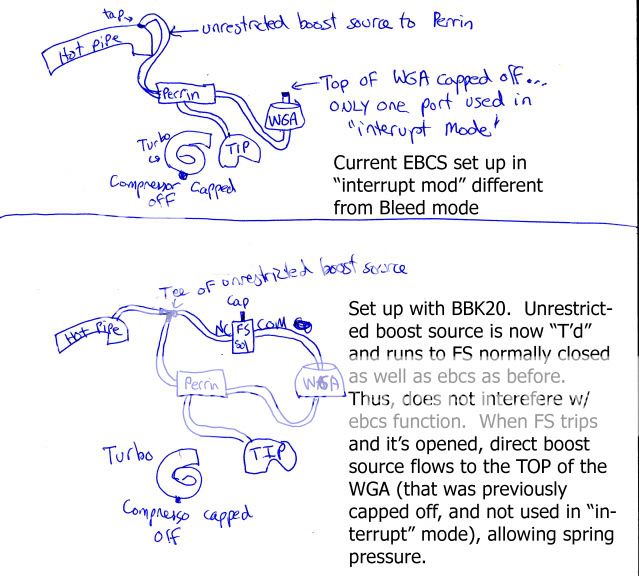 tap
unrestricted boost source to Perrin
Hot pipe
Perrin
Top of WGA capped off...
ONLY one port used in
"interupt Mode"
WGA
Turbo
TIP
Compressor Capped
off
Current EBCS set up in
“interrupt mod” different
from Bleed mode
Tee of unrestricted boost source
Cap
Hot Pipe
NC
FS
Sol
COM
Perrin
WGA
TIP
Turbo
Compresso capped
off
Set up with BBK20.  Unrestrict-
ed boost source is now “T’d”
and runs to FS normally closed
as well as ebcs as before.
Thus, does not interefere w/
ebcs function.  When FS trips
and it’s opened, direct boost
source flows to the TOP of the
WGA (that was previously
capped off, and not used in “in-
terrupt” mode), allowing spring
pressure.